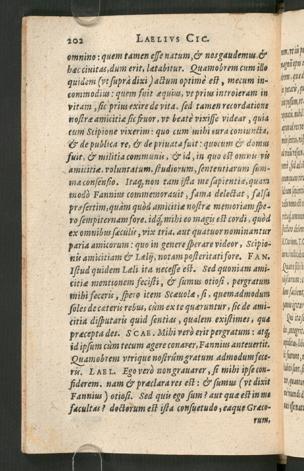 202 LAELIVS CIC.
omnino: quem tamen esse natum, & nos gaudemus, &
hæc ciuitas, dum erit, lætabitur. Quamobrem cum illo
quidem (vt suprà dixi) actum optimè est, mecum in-
commodius: quem fuit æquius, vt prius introieram in
vitam, sic prius exire de vita. sed tamen recordatione
nostræ amicitiæ sic fruor, vt beatè vixisse videar, quia
cum Scipione vixerim: quo cum mihi cura coniuncta,
& de publica re, & de priuata fuit: quocum & domus
fuit, & militia communis, & id, in quo est omnis vis
amicitiæ, voluntatum, studiorum, sententiarum sum-
ma consensio. Itaq; non tam ista me sapientiæ, quam
modò Fannius commemorauit, fama delectat, falsa
præsertim, quàm quòd amicitiæ nostræ memoriam spe-
ro sempiternam fore. idq; mihi eo magis est cordi, quòd
ex omnibus sæculis, vix tria, aut quatuor nominantur
paria amicorum: quo in genere sperare videor, Scipio-
nis amicitiam & Lælij, notam posteritati fore. FAN.
Istud quidem Læli ita necesse est. Sed quoniam ami-
citiæ mentionem fecisti, & sumus otiosi, pergratum
mihi feceris, spero item Scæuolæ, si, quemadmodum
soles de cæteris rebus, cùm ex te quæruntur, sic de ami-
citia disputaris quid sentias, qualem existimes, quæ
præcepta des. SCAE. Mihi verò erit pergratum: atq;
id ipsum cùm tecum agere conarer, Fannius anteuertit.
Quamobrem vtrique nostrûm gratum admodum fece-
ris. LAEL. Ego verò non grauarer, si mihi ipse con-
fiderem. nam & præclara res est: & sumus (vt dixit
Fannius) otiosi. Sed quis ego sum? aut quæ est in me
facultas? doctorum est ista consuetudo, eaque Græco-
rum,